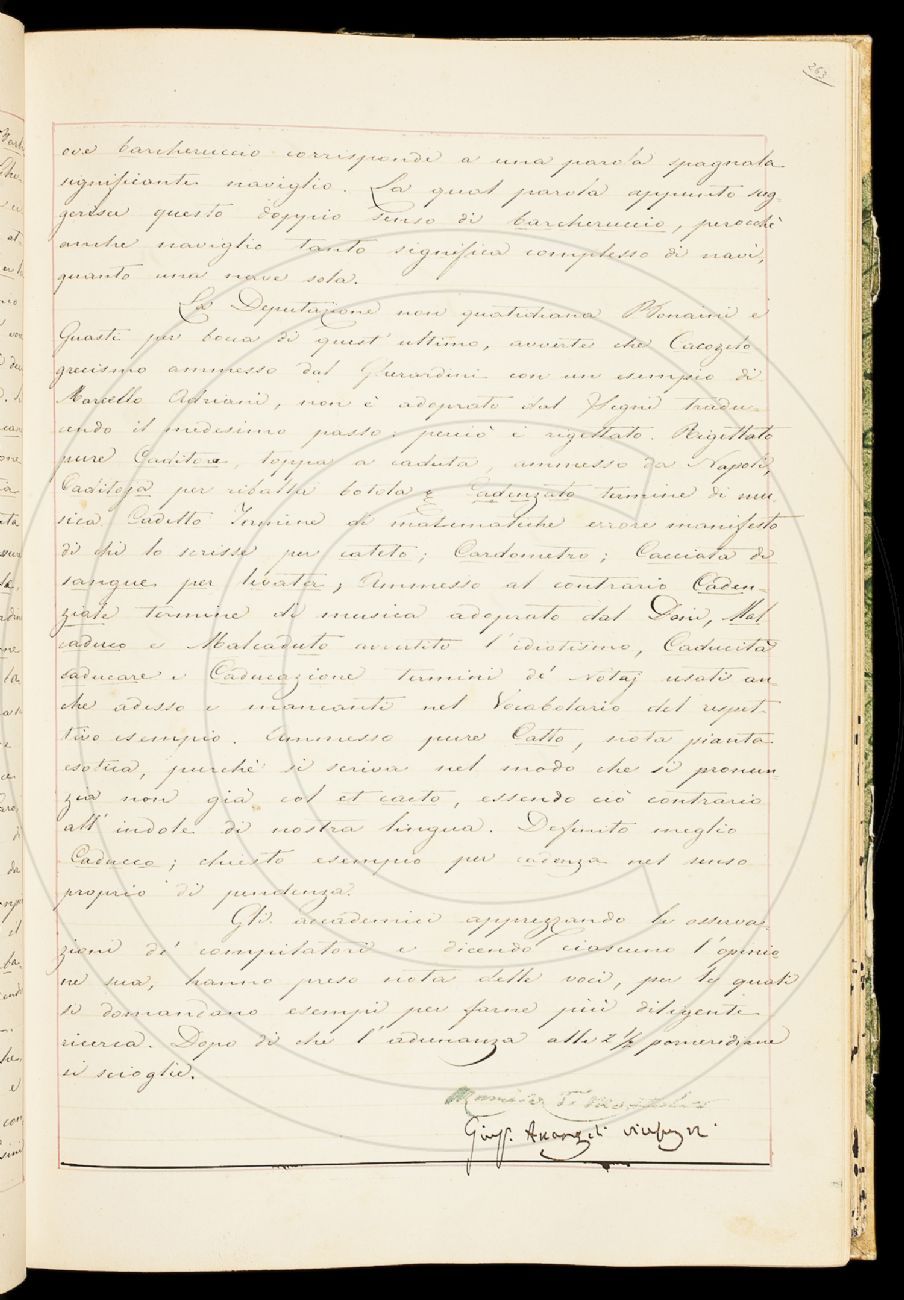 263
ove barcheruccio corrisponde a una parola spagnola
significante naviglio. La qual parola appunto sug-
gerisce questo doppio senso di barcheruccio, perocchè
anche naviglio tanto significa complesso di navi,
quanto una nave sola.
La Deputazione non quotidiana Bonaini e
Guasti per bocca di quest'ultimo, avverte che Cacozelo
grecismo ammesso dal Gherardini con un esempio di
Marcello Adriani, non è adoprato dal Segni tradu-
cendo il medesimo passo: perciò è rigettato. Rigettato
pure Caditore, toppa a caduta, ammesso da Napoli,
Caditoja per ribalta botola e Cadenzato termine di mu-
sica Cadetto Termine di matematiche errore manifesto
di chi lo scrisse per cateto; Cardometro; Cacciata di
sangue per livata; Ammesso al contrario Caden-
ziale termine di musica adoprato dal Doni, Mal
caduco e Malcaduto avvertito l'idiotismo, Caducità
caducare e Caducazione termini de' Notaj usati an-
che adesso e mancanti nel Vocabolario del rispet-
tivo esempio. Ammesso pure Catto, nota pianta
esotica, purchè si scriva nel modo che si pronun-
zia non già col ct cacto, essendo ciò contrario
all'indole di nostra lingua. Definito meglio
Caduceo; chiesto esempio per cadenza nel senso
proprio di pendenza.
Gli accademici apprezzando le osserva-
zioni de' compilatori e dicendo ciascuno l'opinio
ne sua, hanno preso nota delle voci, per le quali
si domandano esempi per farne più diligente
ricerca. Dopo di che l'adunanza alle 2 1/2 pomeridiane
si scioglie.
Gius. Arcangeli